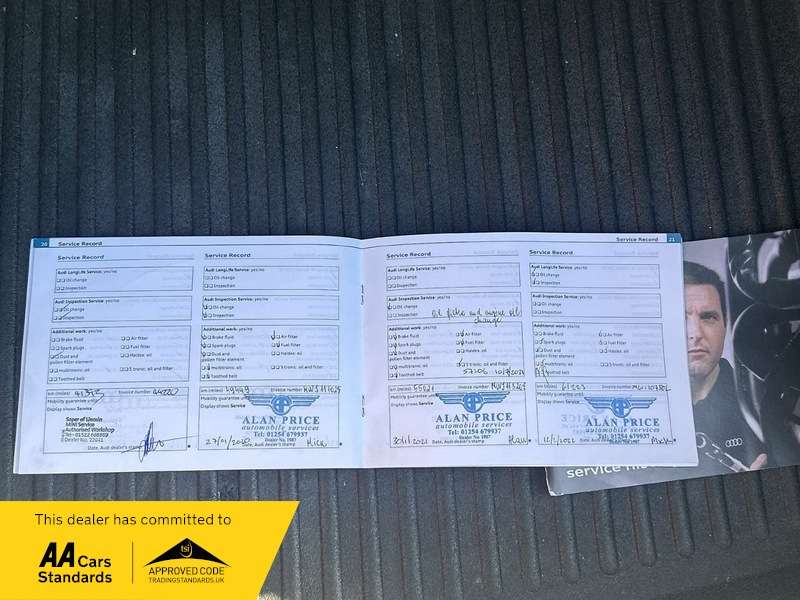 20 Service Record
Service Record
Audi LongLife Service: yes/no
Oil change
Inspection
Audi Inspection Service: yes/no
Oil change
Inspection
Additional work: yes/no
Brake fluid
Air filter
Spark plugs
Fuel filter
Dust and
pollen filter element
Haldex: oil
multitronic: oil
S tronic: oil and filter
Toothed belt
km (miles)
Invoice number
Mobility guarantee until
Display shows Service
Soper of Lincoln
Mini Service
Authorised Workshop
Date, Audi dealer's stamp
Service Record
Audi LongLife Service: yes/no
Oil change
Inspection
Audi Inspection Service: yes/no
Oil change
Inspection
Additional work: yes/no
Brake fluid
Air filter
Spark plugs
Fuel filter
Dust and
pollen filter element
Haldex: oil
multitronic: oil
S tronic: oil and filter
Toothed belt
km (miles)
Invoice number
Mobility guarantee until
Display shows Service
ALAN PRICE
automobile services
Tel: 01254 679937
Dealer No. 1987
Date, Audi dealer's stamp
Service Record 21
Service Record
Audi LongLife Service: yes/no
Oil change
Inspection
Audi Inspection Service: yes/no
Oil change
Inspection
Oil filter and engine oil
change
Additional work: yes/no
Brake fluid
Air filter
Spark plugs
Fuel filter
Dust and
pollen filter element
Haldex: oil
multitronic: oil
S tronic: oil and filter
Toothed belt
km (miles)
Invoice number
Mobility guarantee until
Display shows Service
ALAN PRICE
automobile services
Tel: 01254 679937
Dealer No. 1987
30/1/2021
Date, Audi dealer's stamp
Service Record
Audi LongLife Service: yes/no
Oil change
Inspection
Audi Inspection Service: yes/no
Oil change
Inspection
Additional work: yes/no
Brake fluid
Air filter
Spark plugs
Fuel filter
Dust and
pollen filter element
Haldex: oil
multitronic: oil
S tronic: oil and filter
Toothed belt
km (miles) 61223
Invoice number
Mobility guarantee until
Display shows Service
ALAN PRICE
automobile services
Tel: 01254 679937
12/2/2022
Date, Audi dealer's stamp
service
This dealer has committed to
AA Cars
Standards
tsi
APPROVED CODE
TRADINGSTANDARDS.UK